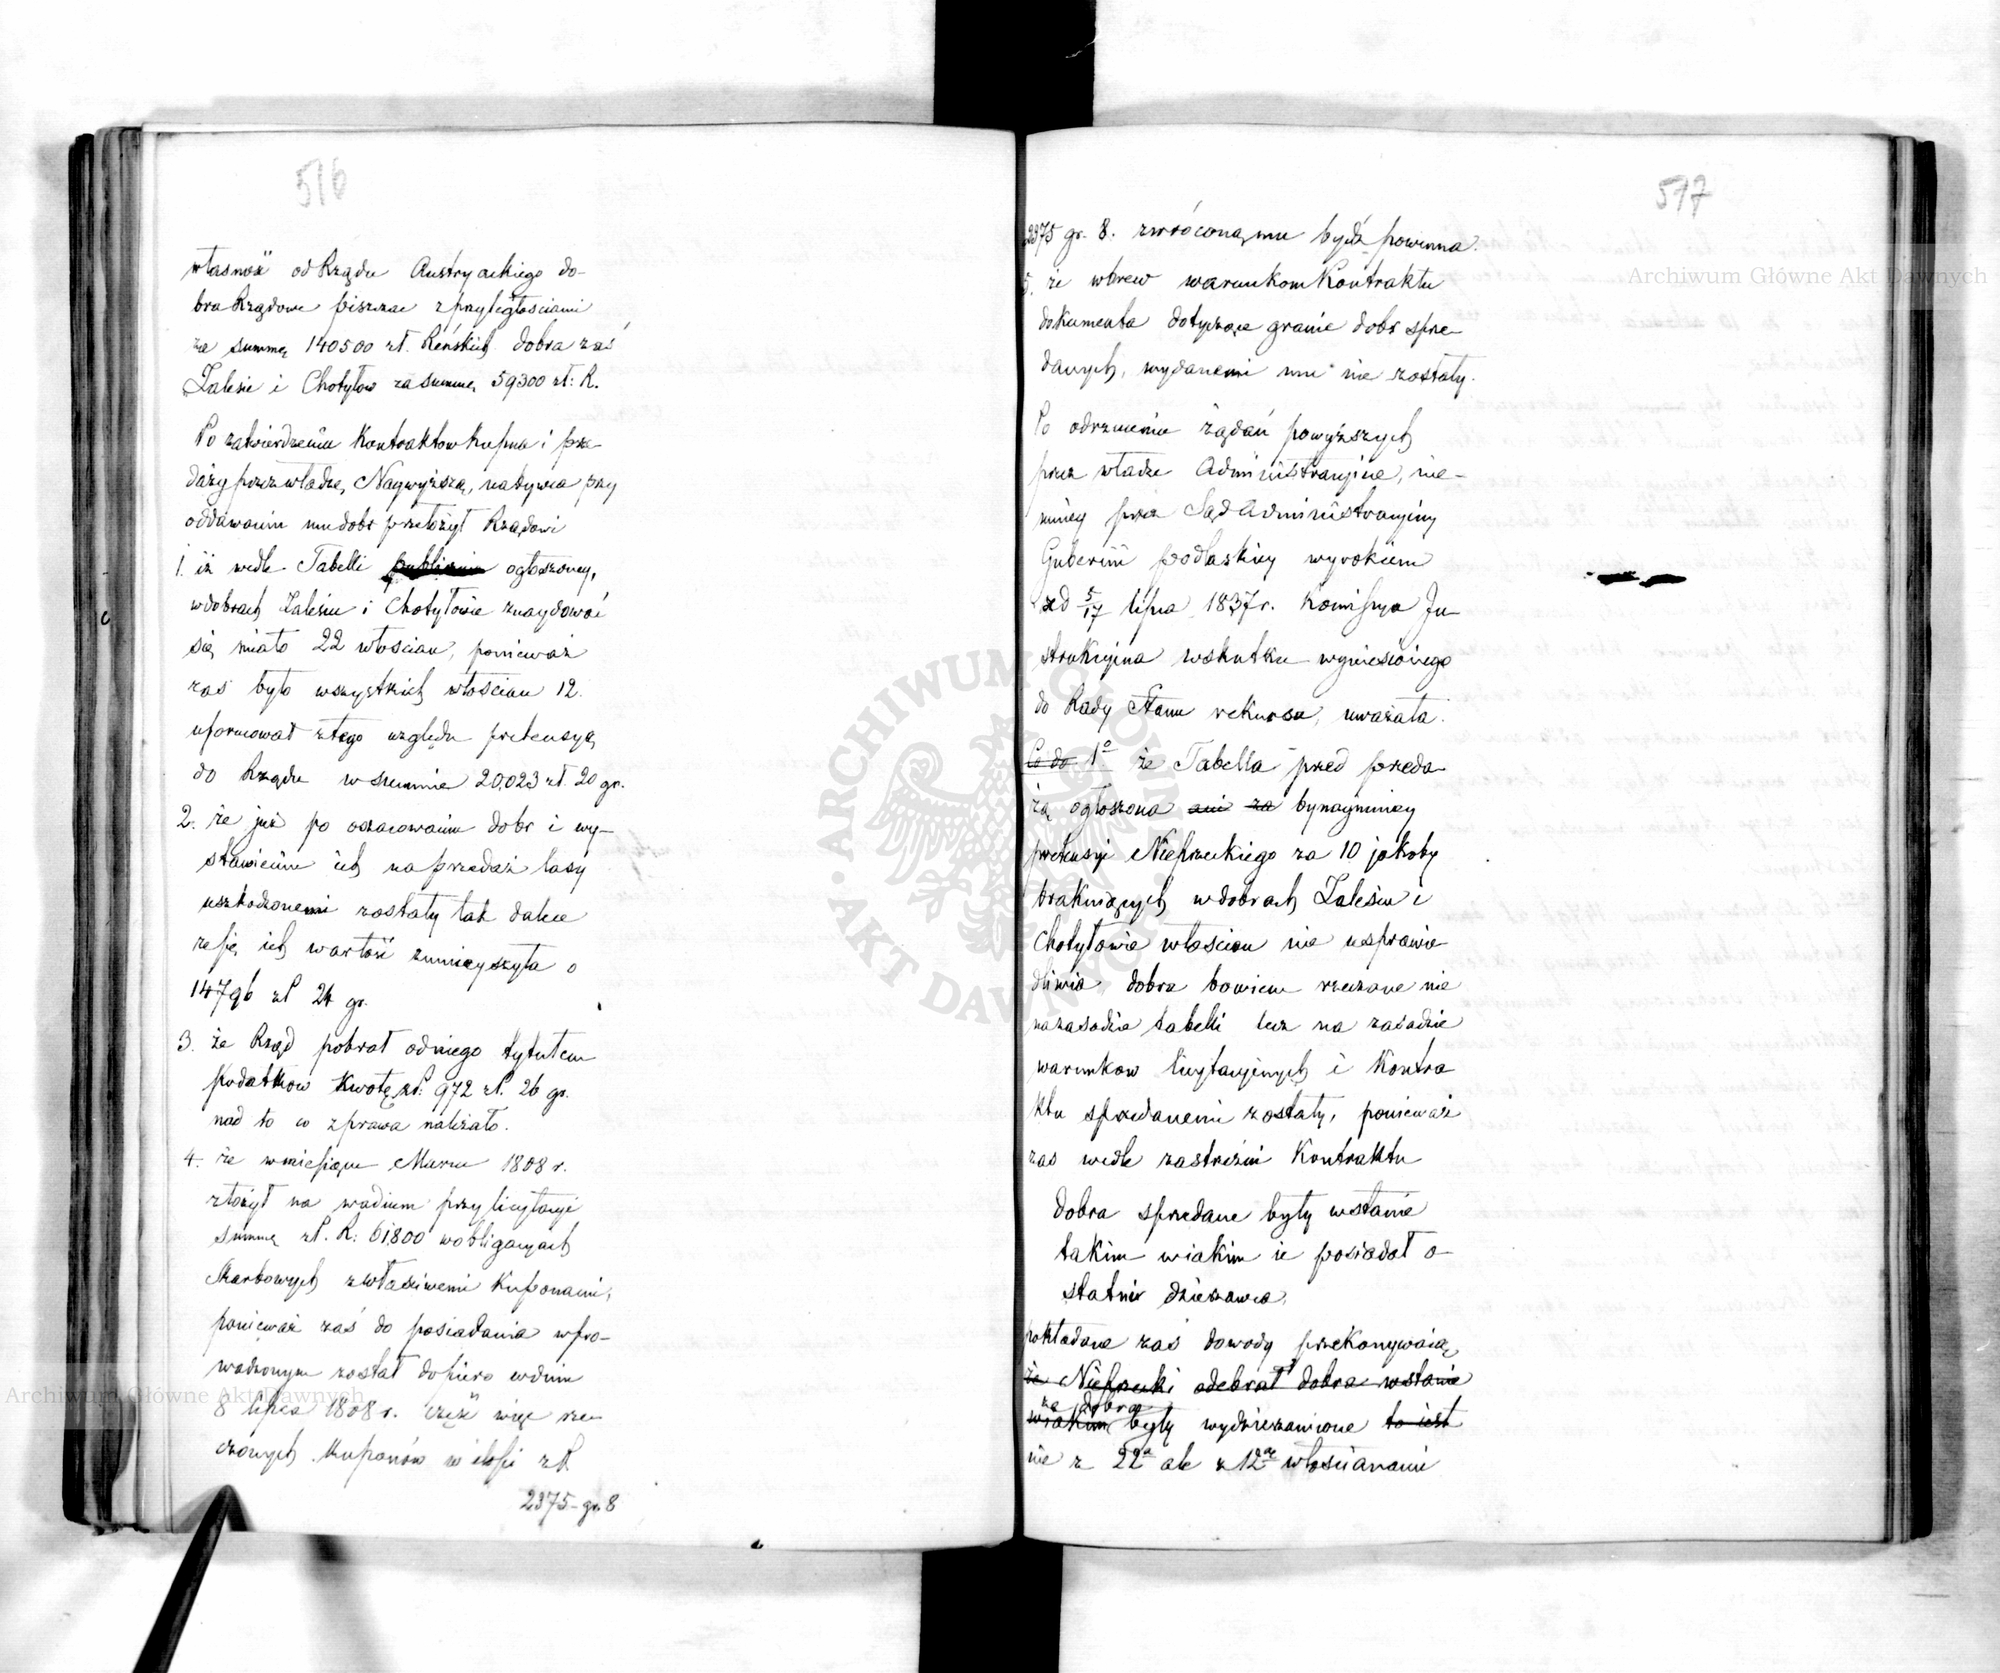 516
własność od Rządu Austryackiego do-
bra Rządowe piszczac z przyległościami
za summę 140500 zł. Reńskich dobra zaś
Zalesie i Chotyłow za summę 59300 zł: R.
Po zatwierdzeniu Kontraktow kupna i prze-
daży przez władzę Naywyższą, nabywca przy
oddawaniu mu dobr przełożył Rządowi
1. iż wedle Tabelli publicznie ogłoszoney,
w dobrach Zalesiu i Chotyłowie znaydować
się miało 22 włościan, ponieważ
zaś było wszystkich włościan 12.
uformował z tego względu pretensyę
do Rządu w summie 20,023 zł. 20 gr.
2. że już po oszacowaniu dobr i wy-
stawieniu ich na przedaż lasy
uszkodzonemi zostały tak dalece
że się ich wartość zmnieyszyła o
14796 zł 24 gr.
3. że Rząd pobrał od niego tytułem
podatkow kwotę zł: 972 zł. 26 gr.
nad to co z prawa należało.
4. że w miesiącu Marcu 1808 r.
złożył na wadium przy licytacyi
summę zł. R: 61800 w obligacyach
Skarbowych z właściwemi Kuponami,
ponieważ zaś do posiadania wpro-
wadzonym został dopiero w dniu
8 lipca 1808 r. część więc rze-
czonych Kuponów w ilości zł.
2375 - gr. 8
517
2375 gr. 8. zwróconą mu bydź powinna.
5. że wbrew warunkom Kontraktu
dokumenta dotyczące granic dobr sprze-
danych, wydanemi mu nie zostały.
Po odrzuceniu żądań powyższych
przez władze Administracyine, nie-
mniey przez Sąd Administracyiny
Gubernii podlaskiey wyrokiem
z d 5/17 lipca 1837 r. Kommissya In-
strukcyina w skutku wyniesionego
do Rady Stanu rekursu, uważała.
Co do 1° że Tabella przed przeda-
żą ogłoszona ani za bynaymniey
pretensyi Nieprzeckiego za 10 jakoby
brakuiących w dobrach Zalesiu i
Chotyłowie włościan nie usprawie-
dliwia dobra bowiem rzeczone nie
na zasadzie tabelli lecz na zasadzie
warunkow licytacyinych i Kontra-
ktu sprzedanemi zostały, ponieważ
zaś wedle zastrzeżeń Kontraktu
dobra sprzedane były w stanie
takim w iakim ie posiadał o-
statni dzierżawca,
pokładane zaś dowody przekonywaią
że Nieprzecki odebrał dobra w stanie
że dobra
w iakim były wydzierżawione to iest
nie z 22ª ale z 12ª włościanami
Archiwum Główne Akt Dawnych
Archiwum Główne Akt Dawnych
ARCHIWUM GŁÓWNE AKT DAWNYCH